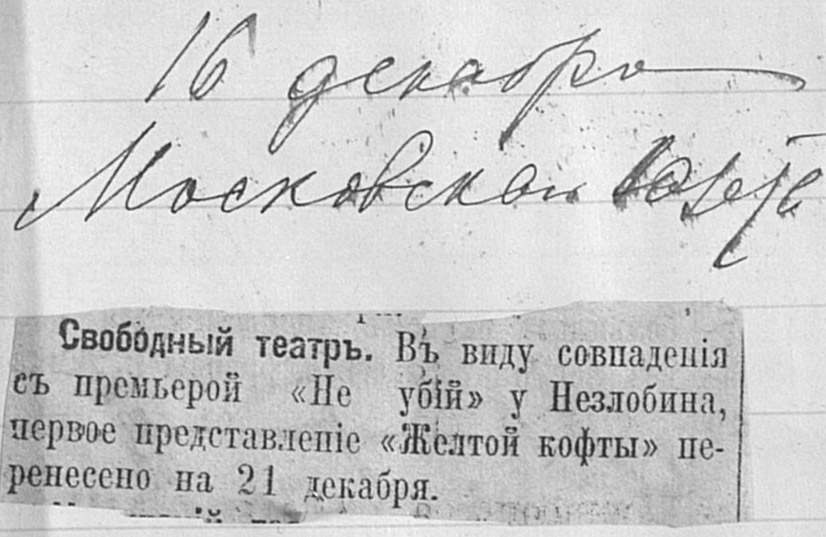 16 декабря
Московская Газета
Свободный театръ. Въ виду совпаденія
съ премьерой «Не убій» у Незлобина,
первое представленіе «Желтой кофты» пе-
ренесено на 21 декабря.